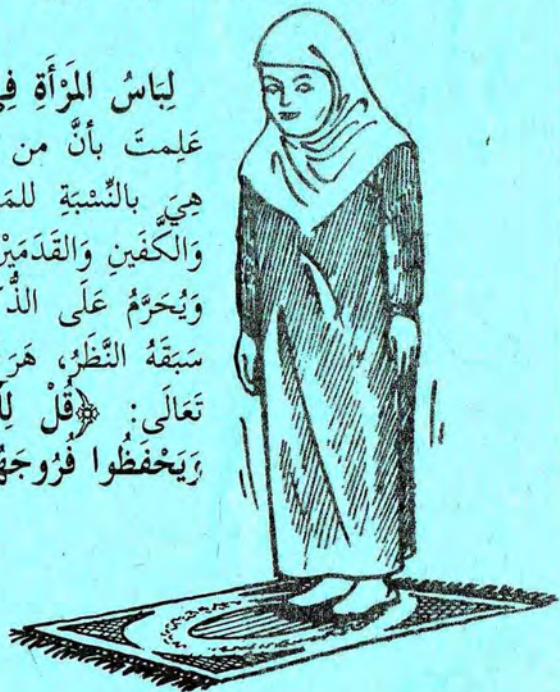 لِبَاسُ المَرْأَةِ فِي
عَلِمتَ بأنَّ من
هِيَ بالنِّسْبَةِ للمَ
وَالكَّفَينِ وَالقَدَمَيْ
وَيُحَرَّمُ عَلَى الذَّ
سَبَقَهُ النَّظَرُ، هَرَ
تَعَالَى: ﴿قُلْ لِلْ
وَيَحْفَظُوا فُرُوجَهُ